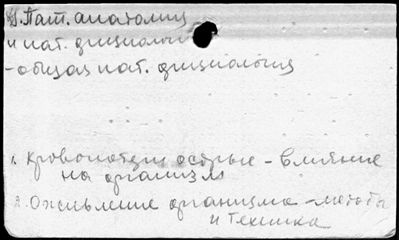 Пат. анатомия
и пат. физиология
- общая пат. физиология
1. Кровопотери острые - влияние
на организм
2. Оживление организма - методы
и техника